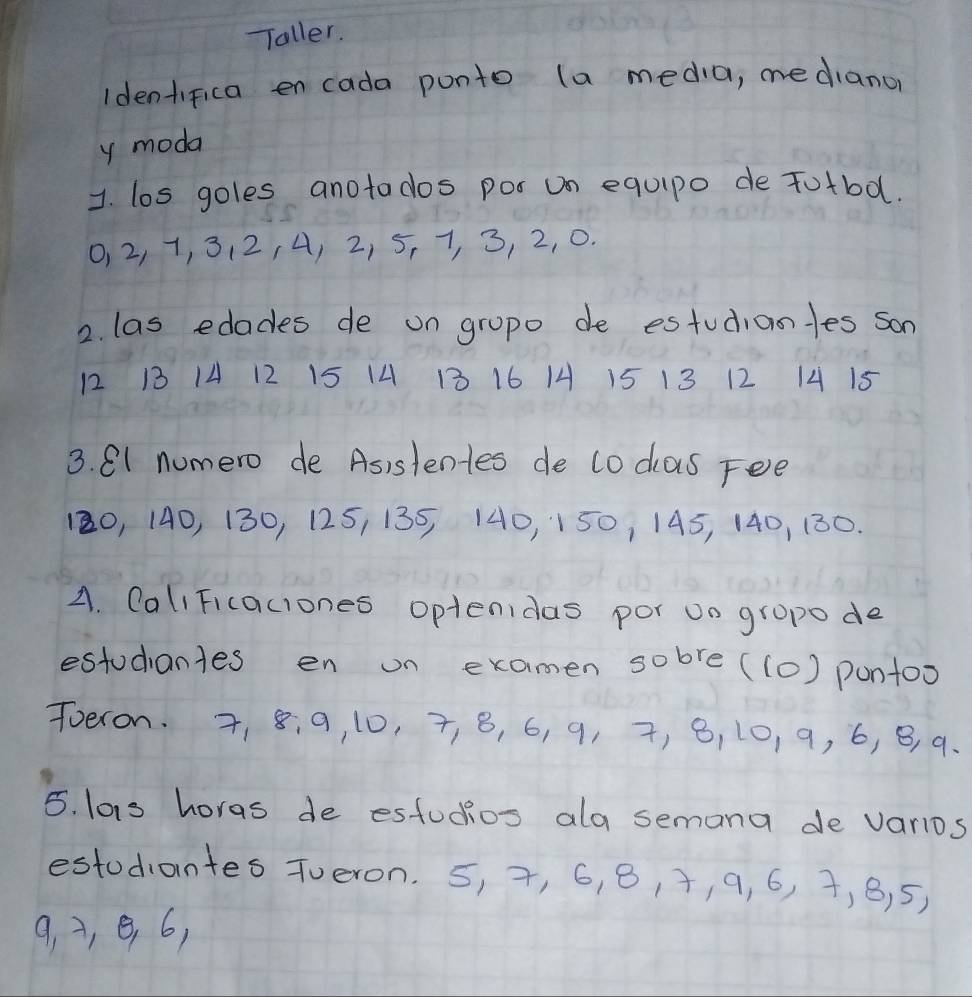 Taller.
Identifica en cada punto la media, mediana
y moda
1. los goles anotados por un equipo de Futbol.
0, 2, 1, 3, 2, 4, 2, 5, 1, 3, 2, 0.
2. las edades de un grupo de estudiantes son
12 13 14 12 15 14 13 16 14 15 13 12 14 15
3. El numero de Asistentes de 10 dias Fue
120, 140, 130, 125, 135, 140, 150, 145, 140, 130.
4. Calificaciones optenidas por un grupo de
estudiantes en un examen sobre (10) puntos
Fueron. 7, 8, 9, 10, 7, 8, 6, 9, 7, 8, 10, 9, 6, 8, 9.
5. las horas de estudios ala semana de varios
estudiantes Fueron. 5, 7, 6, 8, 7, 9, 6, 7, 8, 5,
9, 7, 8, 6,